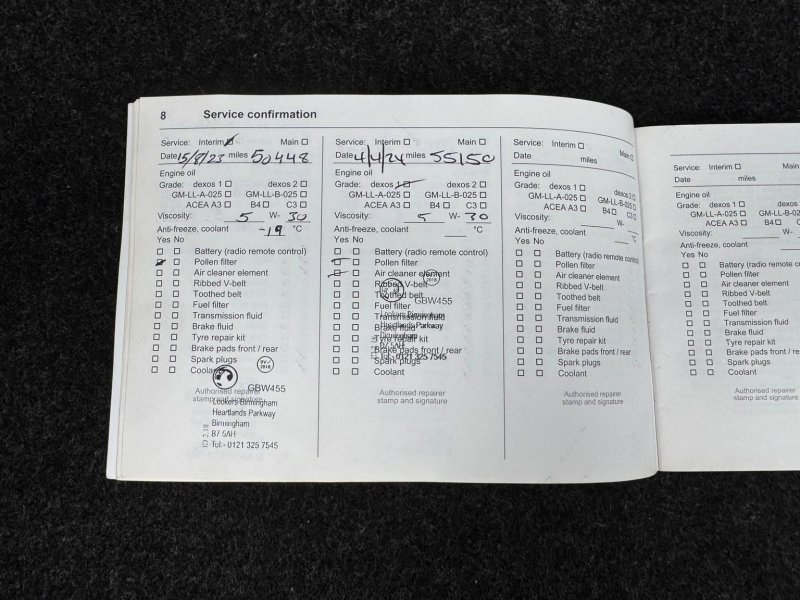 8 Service confirmation
Service: Interim Main
Date 15/8/23 miles 50448
Engine oil
Grade: dexos 1 dexos 2
GM-LL-A-025 GM-LL-B-025
ACEA A3 B4 C3
Viscosity: 5 W- 30
Anti-freeze, coolant -19 °C
Yes No
Battery (radio remote control)
Pollen filter
Air cleaner element
Ribbed V-belt
Toothed belt
Fuel filter
Transmission fluid
Brake fluid
Tyre repair kit
Brake pads front / rear
Spark plugs
Coolant
2018
GBW455
Authorised repairer
stamp and signature
Lookers Birmingham
Heartlands Parkway
Birmingham
B7 5AH
Tel:- 0121 325 7545
Service: Interim Main
Date 4/4/24 miles 55150
Engine oil
Grade: dexos 1 dexos 2
GM-LL-A-025 GM-LL-B-025
ACEA A3 B4 C3
Viscosity: 5 W- 30
Anti-freeze, coolant °C
Yes No
Battery (radio remote control)
Pollen filter
Air cleaner element
2018
Ribbed V-belt
Toothed belt
GBW455
Fuel filter
Transmission fluid
Lookers Birmingham
Brake fluid
Heartlands Parkway
Tyre repair kit
Birmingham
Brake pads front / rear
B7 5AH
Spark plugs
Tel:- 0121 325 7545
Coolant
Authorised repairer
stamp and signature
Service: Interim Main
Date miles
Engine oil
Grade: dexos 1 dexos 2
GM-LL-A-025 GM-LL-B-025
ACEA A3 B4 C3
Viscosity: W-
Anti-freeze, coolant °C
Yes No
Battery (radio remote
Pollen filter
Air cleaner element
Ribbed V-belt
Toothed belt
Fuel filter
Transmission fluid
Brake fluid
Tyre repair kit
Brake pads front / rear
Spark plugs
Coolant
Authorised repairer
stamp and signature
Service: Interim Main
Date miles
Engine oil
Grade: dexos 1 dexos
GM-LL-A-025 GM-LL-B-0
ACEA A3 B4 C
Viscosity: W-
Anti-freeze, coolant
Yes No
Battery (radio remote con
Pollen filter
Air cleaner element
Ribbed V-belt
Toothed belt
Fuel filter
Transmission fluid
Brake fluid
Tyre repair kit
Brake pads front / rear
Spark plugs
Coolant
Authorised repairer
stamp and signature